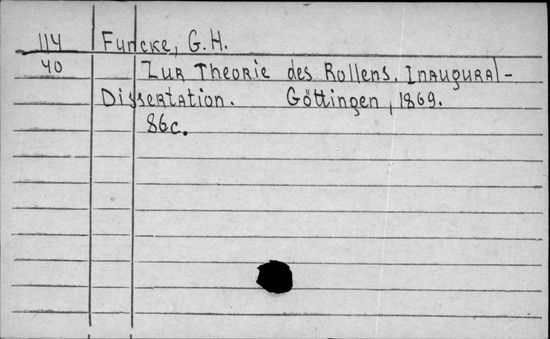 114 Funcke, G.H.
40 Zur Theorie des Rollens. Inaugural-
Dissertation. Göttingen, 1869.
86c.